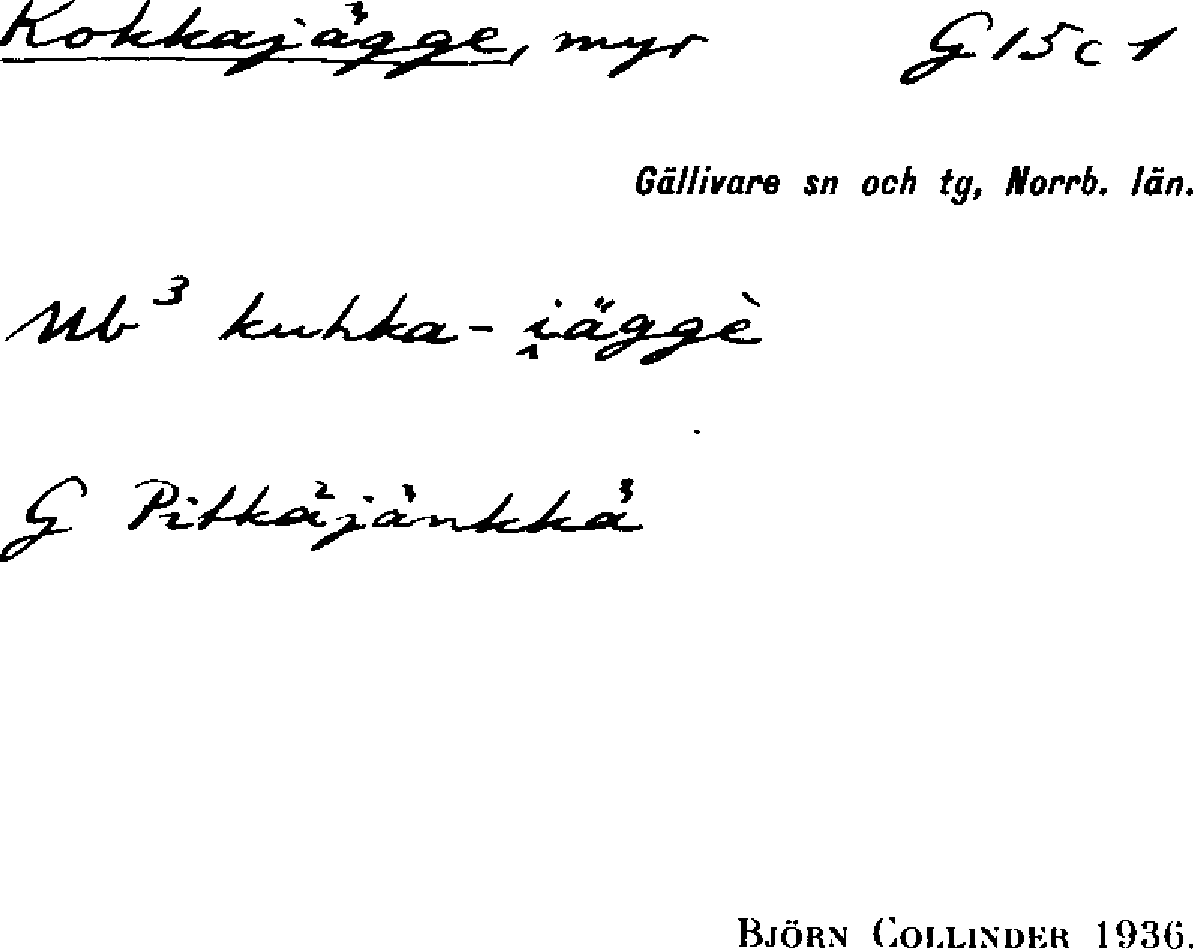 Kokkajägge, myr G 15 c 1
Gällivare sn och tg, Norrb. län.
Nb³ kuhka-i̭äggè
G Pitkäjänkkä
BJÖRN COLLINDER 1936.